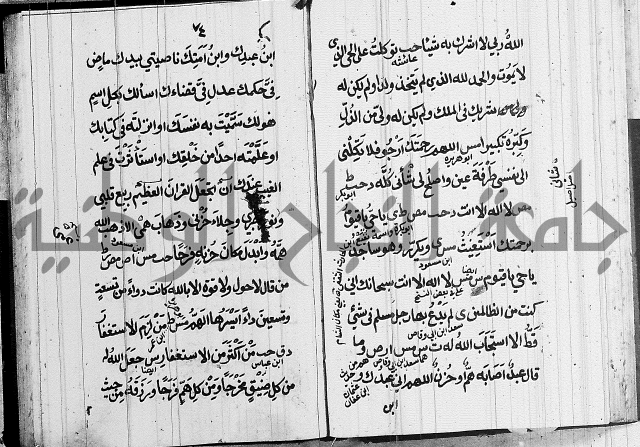 الله ربي لا اشرك به شيئا حب توكلت على الحي الذي
لا يموت والحمد لله الذي لم يتخذ ولدا ولم يكن له
شريك في الملك ولم يكن له ولي من الذل
وكبره تكبيرا مس اللهم رحمتك ارجو فلا تكلني
الى نفسي طرفة عين واصلح لي شأني كله دحب ط
مس لا اله الا انت دحب مص ط ى يا حي يا قيوم
برحمتك استغيث مس ى ويكرر وهو ساجد
يا حي يا قيوم س مس لا اله الا انت سبحانك اني
كنت من الظالمين ى لم يدع بها رجل مسلم في شئ
قط الا استجاب الله له ت س مس ا ر ص وما
قال عبد اصابه هم او حزن اللهم اني عبدك و
ابن
٧٤
ابن عبدك وابن امتك ناصيتي بيدك ماض
في حكمك عدل في قضاءك اسألك بكل اسم
هو لك سميت به نفسك او انزلته في كتابك
او علمته احدا من خلقك او استأثرت في علم
الغيب عندك ان تجعل القرآن العظيم ربيع قلبي
ونور بصري وجلاء حزني وذهاب همي الا ذهب الله
همه وابدل مكان حزنه فرحا حب مس ا ص مص ر ط
من قال لا حول ولا قوة الا بالله كانت دواء من تسعة
وتسعين داء ايسرها الهم مس ط من لزم الاستغفار
د ق حب من اكثر من الاستغفار س جعل الله له
من كل ضيق مخرجا ومن كل هم فرجا ورزقه من حيث
جامعة النجاح الوطنية